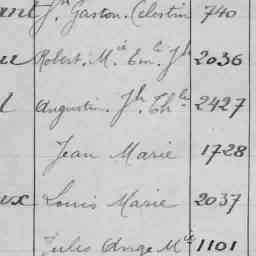 ant Jh Gaston. Célestin 740
u Robert. M.ie Em.le Jh 2036
l Augustin. Jh. Ch.les 2427
Jean Marie 1728
ux Louis Marie 2037
Jules Ange M.ie 1101